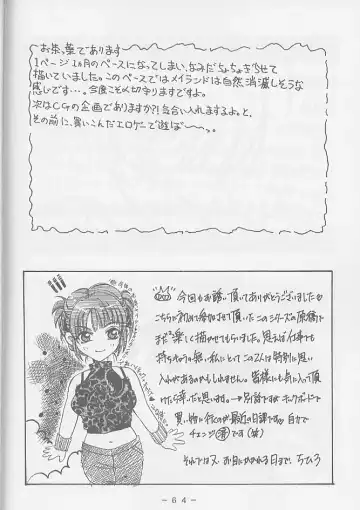 お朱、葉であります
1ページ1ヵ月のペースになってしまい、なみだちょちょぎらせて
描いていました。このペースではメイランドは自然消滅しそうな
感じです…。今度こそ〆切守りますですよ。
次はCGの企画でありますか?!気合い入れますよぉっと、
その前に、買いこんだエロゲーで遊ぼーっ。
今回もお誘い頂いてありがとうございました
こちらに初めて参加させて頂いたこのシリーズの原稿で
また楽しく描かせてもらいました。思えば仕事でも
持ちキャラの無い私にとってこの2人は特別に思い
入れがあるのかもしれません。皆様にも気に入って頂
けたら幸いだと思います。別話ですがキックボードで
買い物に行くのが最近の日課ですね 自力で
チェンジ です(笑)
それでは又、お目にかかれる日まで、ちひろ
－64－